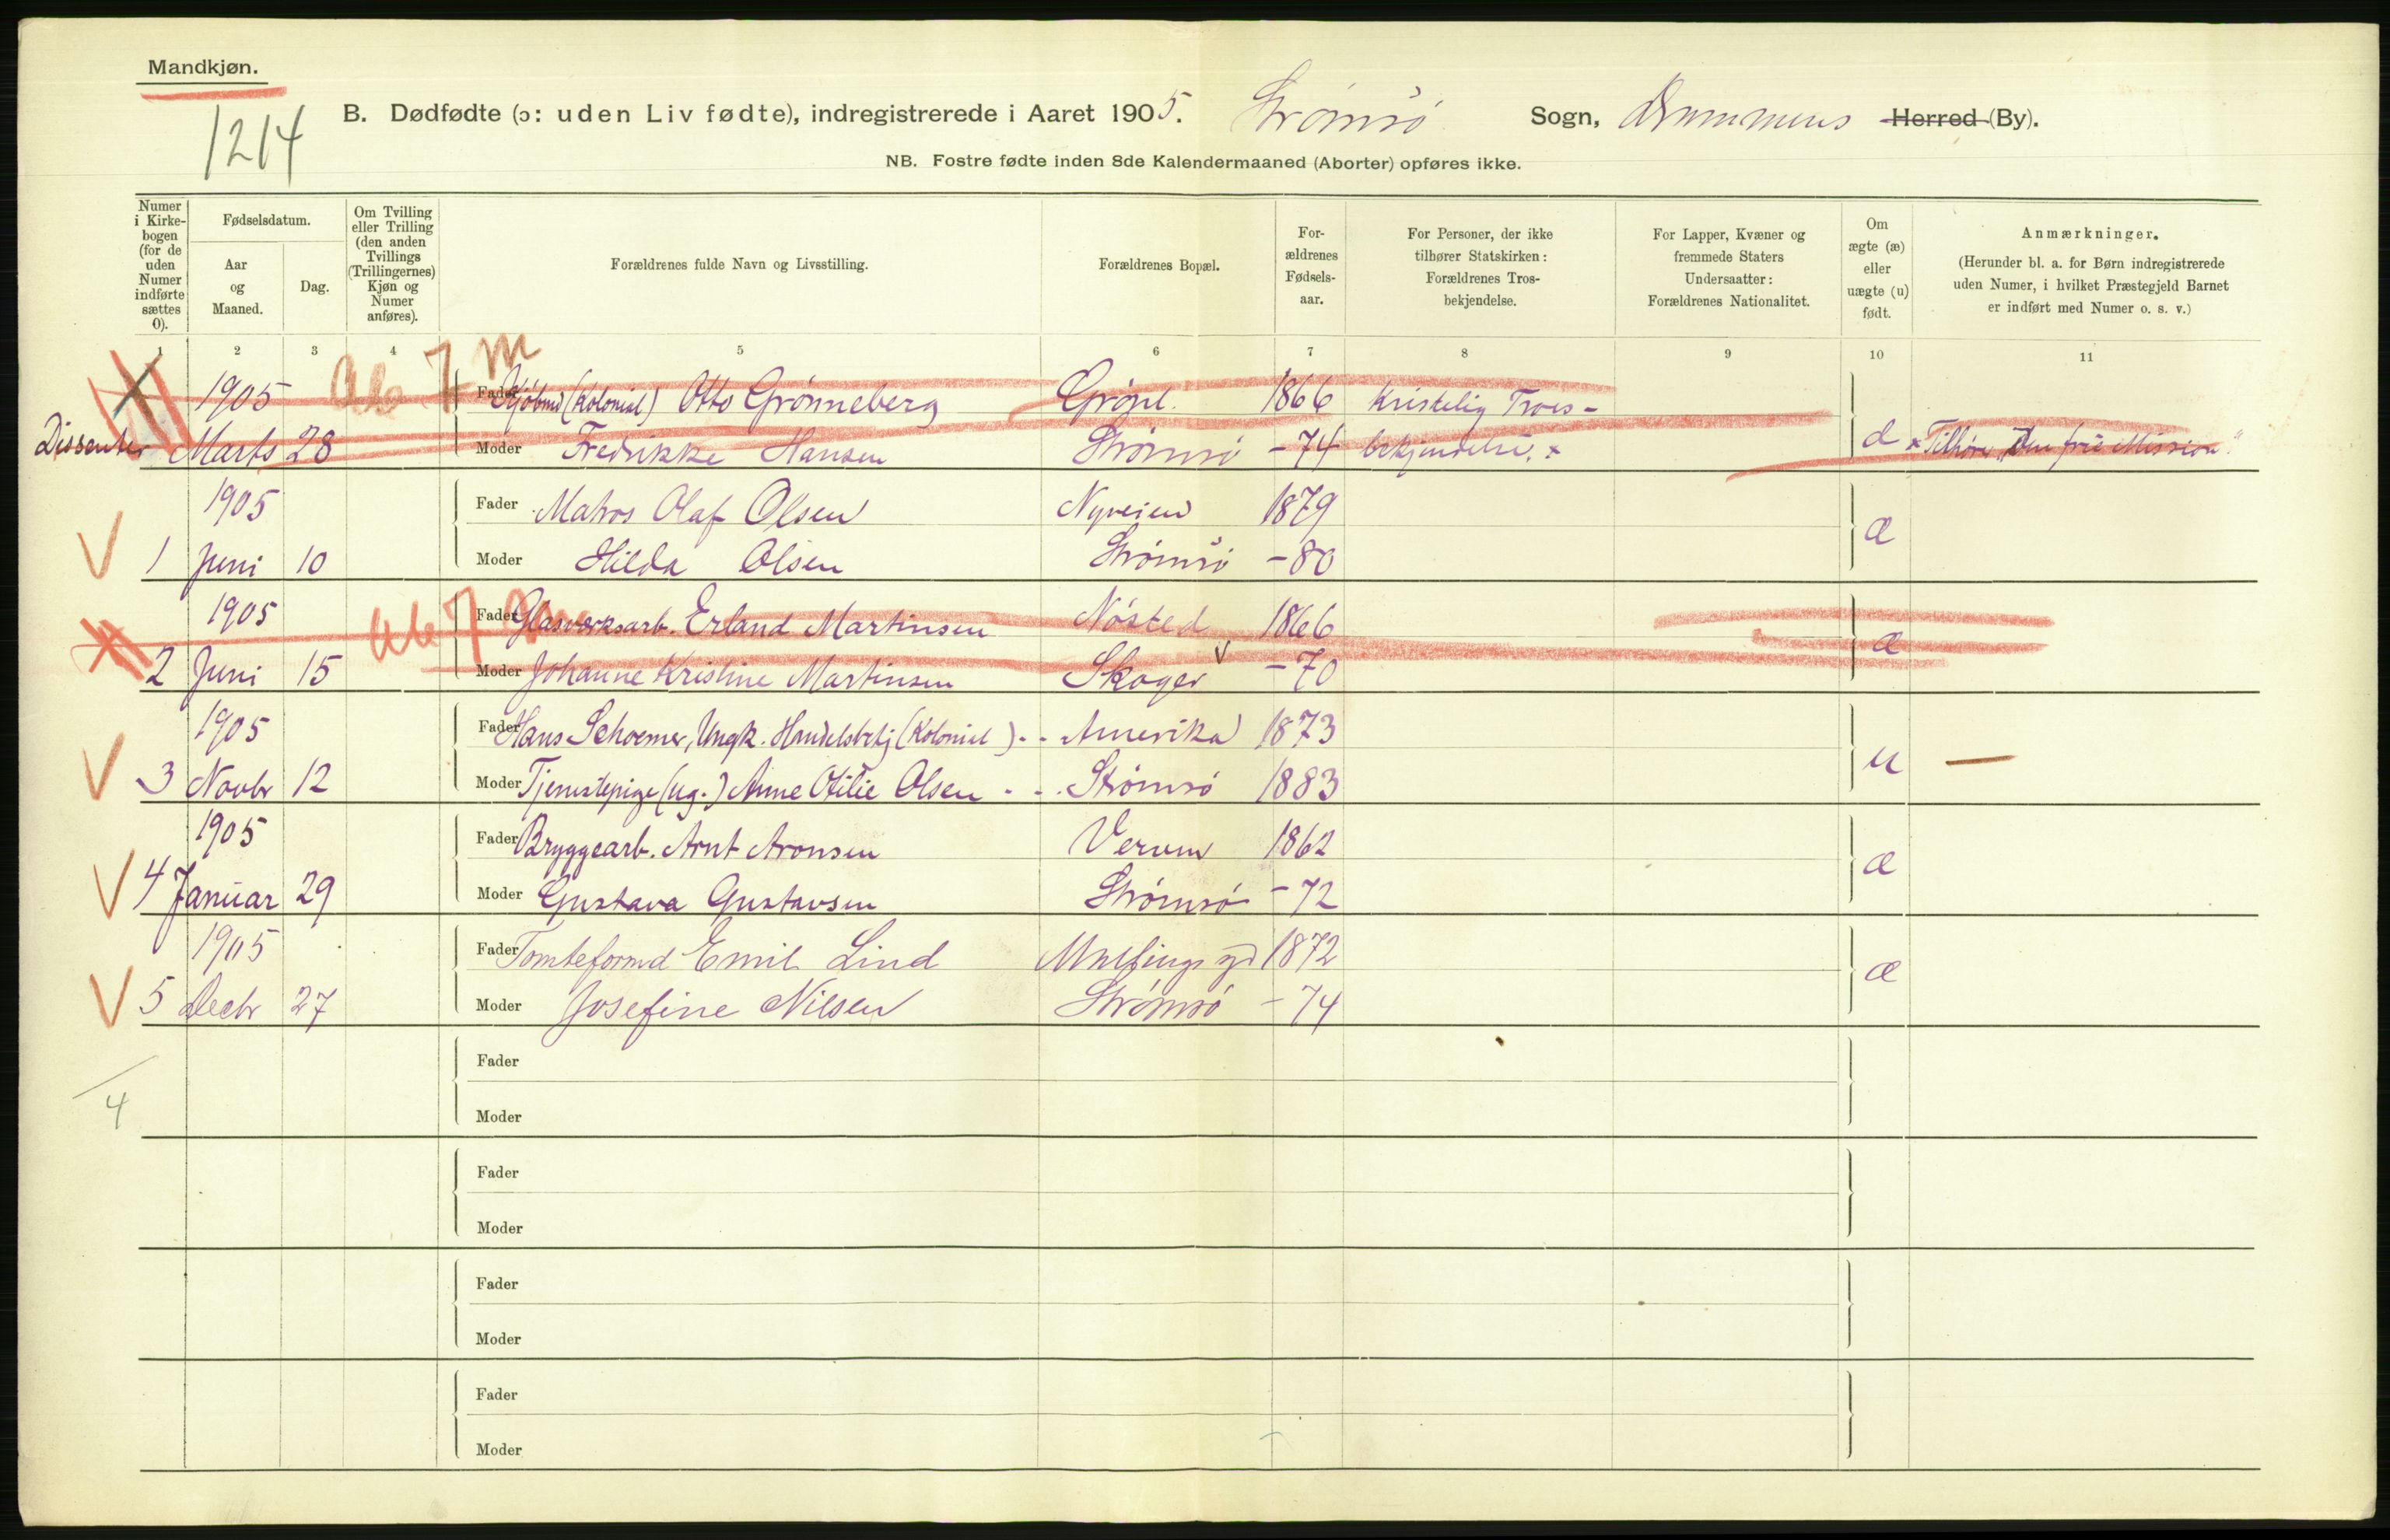 Mandkjøn.
1214
B. Dødfødte (ɔ: uden Liv fødte), indregistrerede i Aaret 1905. Strømsø Sogn, Drammens Herred (By).
NB. Fostre fødte inden 8de Kalendermaaned (Aborter) opføres ikke.
Numer i Kirke-bogen (for de uden Numer indførte sættes 0).
Fødselsdatum.
Aar og Maaned.
Dag.
Om Tvilling eller Trilling (den anden Tvillings (Trillingernes) Kjøn og Numer anføres).
Forældrenes fulde Navn og Livsstilling.
Forældrenes Bopæl.
For-ældrenes Fødsels-aar.
For Personer, der ikke tilhører Statskirken: Forældrenes Tros-bekjendelse.
For Lapper, Kvæner og fremmede Staters Undersaatter: Forældrenes Nationalitet.
Om ægte (æ) eller uægte (u) født.
Anmærkninger.
(Herunder bl. a. for Børn indregistrerede uden Numer, i hvilket Præstegjeld Barnet er indført med Numer o. s. v.)
1 2 3 4 5 6 7 8 9 10 11
Ab 7 m
1905 Fader Kjøbmd (Kolonial) Otto Grønneberg Grønl. 1866 Kristelig Troes-
Dissenter Marts 28 Moder Fredrikke Hansen Strømsø -74 bekjendelse. x d x Tilhører "Den frie Mission"
1905 Fader Matros Olaf Olsen Nyveien 1879
1 Juni 10 Moder Hilda Olsen Strømsø -80 æ
1905 Ab 7 m Fader Glasværksarb. Erland Martinsen Nøsted 1866
2 Juni 15 Moder Johanne Kristine Martinsen Skoger -70 æ
1905 Fader Hans Schoemer, Ungk. Handelsbetj (Kolonial) Amerika 1873
3 Novbr 12 Moder Tjenestepige (ug.) Anne Otilie Olsen Strømsø 1883 u —
1905 Fader Bryggearb. Arnt Aronsen Verven 1862
4 Januar 29 Moder Gustava Gustavsen Strømsø -72 æ
1905 Fader Tomteformd Emil Lind 1872
5 Decbr 27 Moder Josefine Nilsen Strømsø -74 æ
Fader
4
Moder
Fader
Moder
Fader
Moder
Fader
Moder